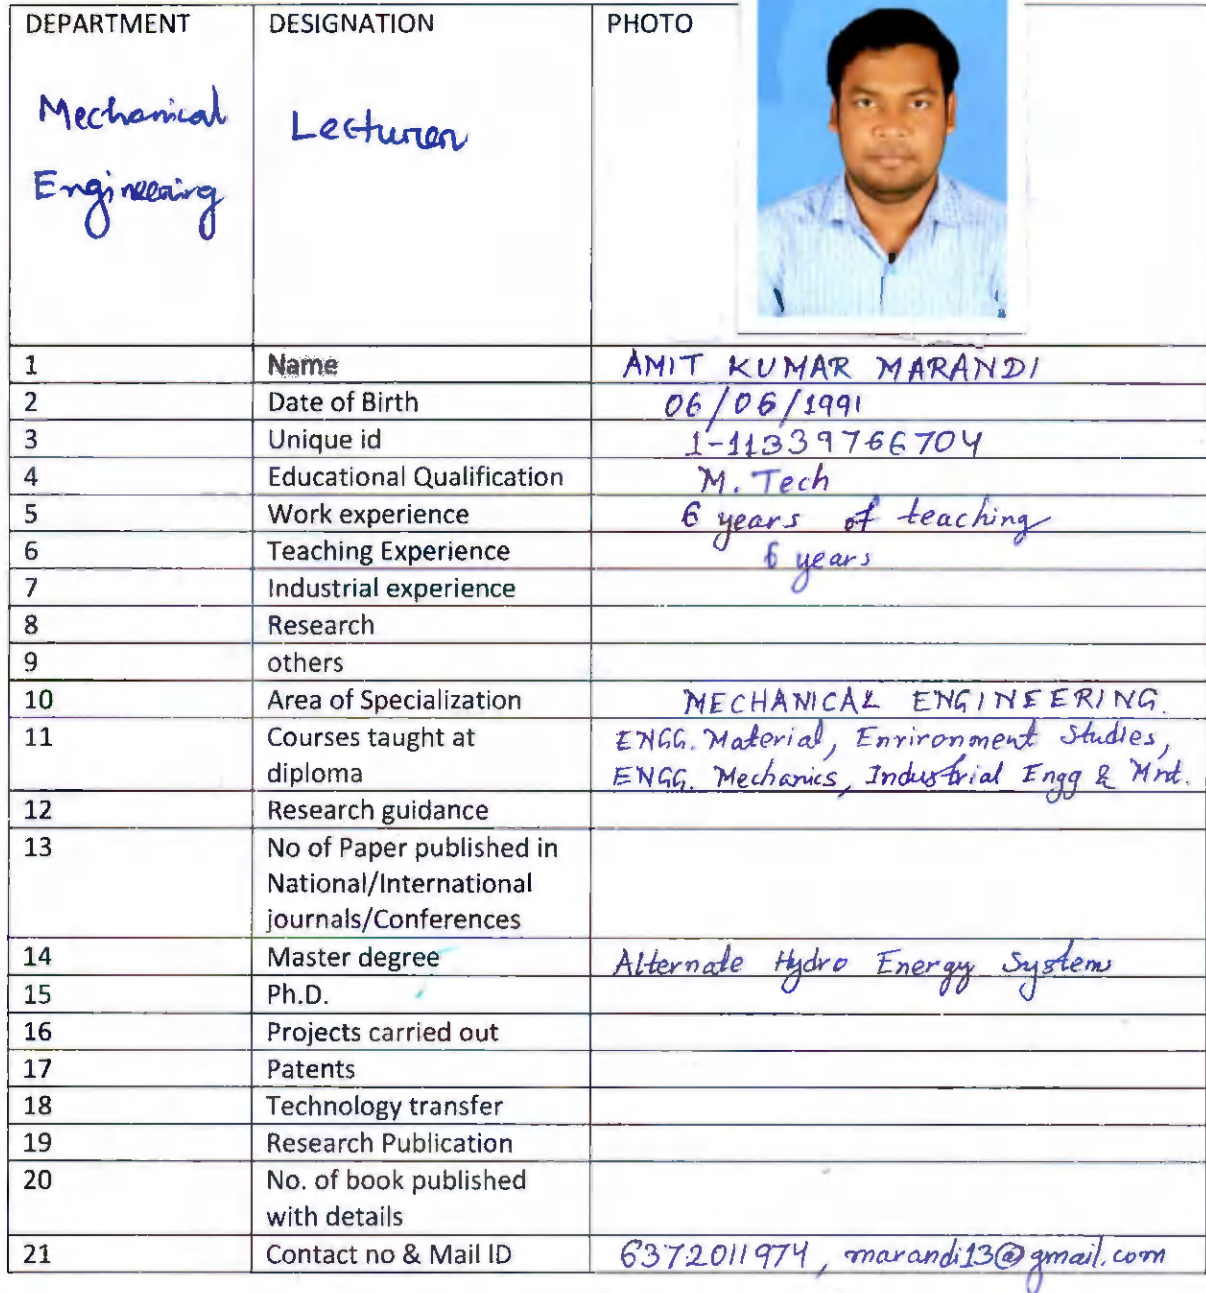 DEPARTMENT DESIGNATION PHOTO
Mechanical Lecturer
Engineering
1 Name AMIT KUMAR MARANDI
2 Date of Birth 06/06/1991
3 Unique id 1-11339766704
4 Educational Qualification M. Tech
5 Work experience 6 years of teaching
6 Teaching Experience 6 years
7 Industrial experience
8 Research
9 others
10 Area of Specialization MECHANICAL ENGINEERING.
11 Courses taught at ENGG. Material, Environment Studies,
diploma ENGG. Mechanics, Industrial Engg & Mnt.
12 Research guidance
13 No of Paper published in
National/International
journals/Conferences
14 Master degree Alternate Hydro Energy Systems
15 Ph.D.
16 Projects carried out
17 Patents
18 Technology transfer
19 Research Publication
20 No. of book published
with details
21 Contact no & Mail ID 6372011974, marandi13@gmail.com